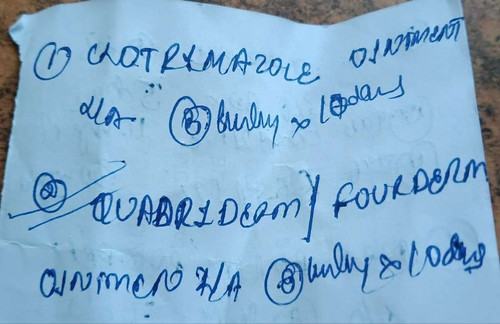 ① CLOTRIMAZOLE OINTMENT
L/A ③ × 10 days
② QUADRIDERM / FOURDERM
OINTMEN L/A ③ × 10 days